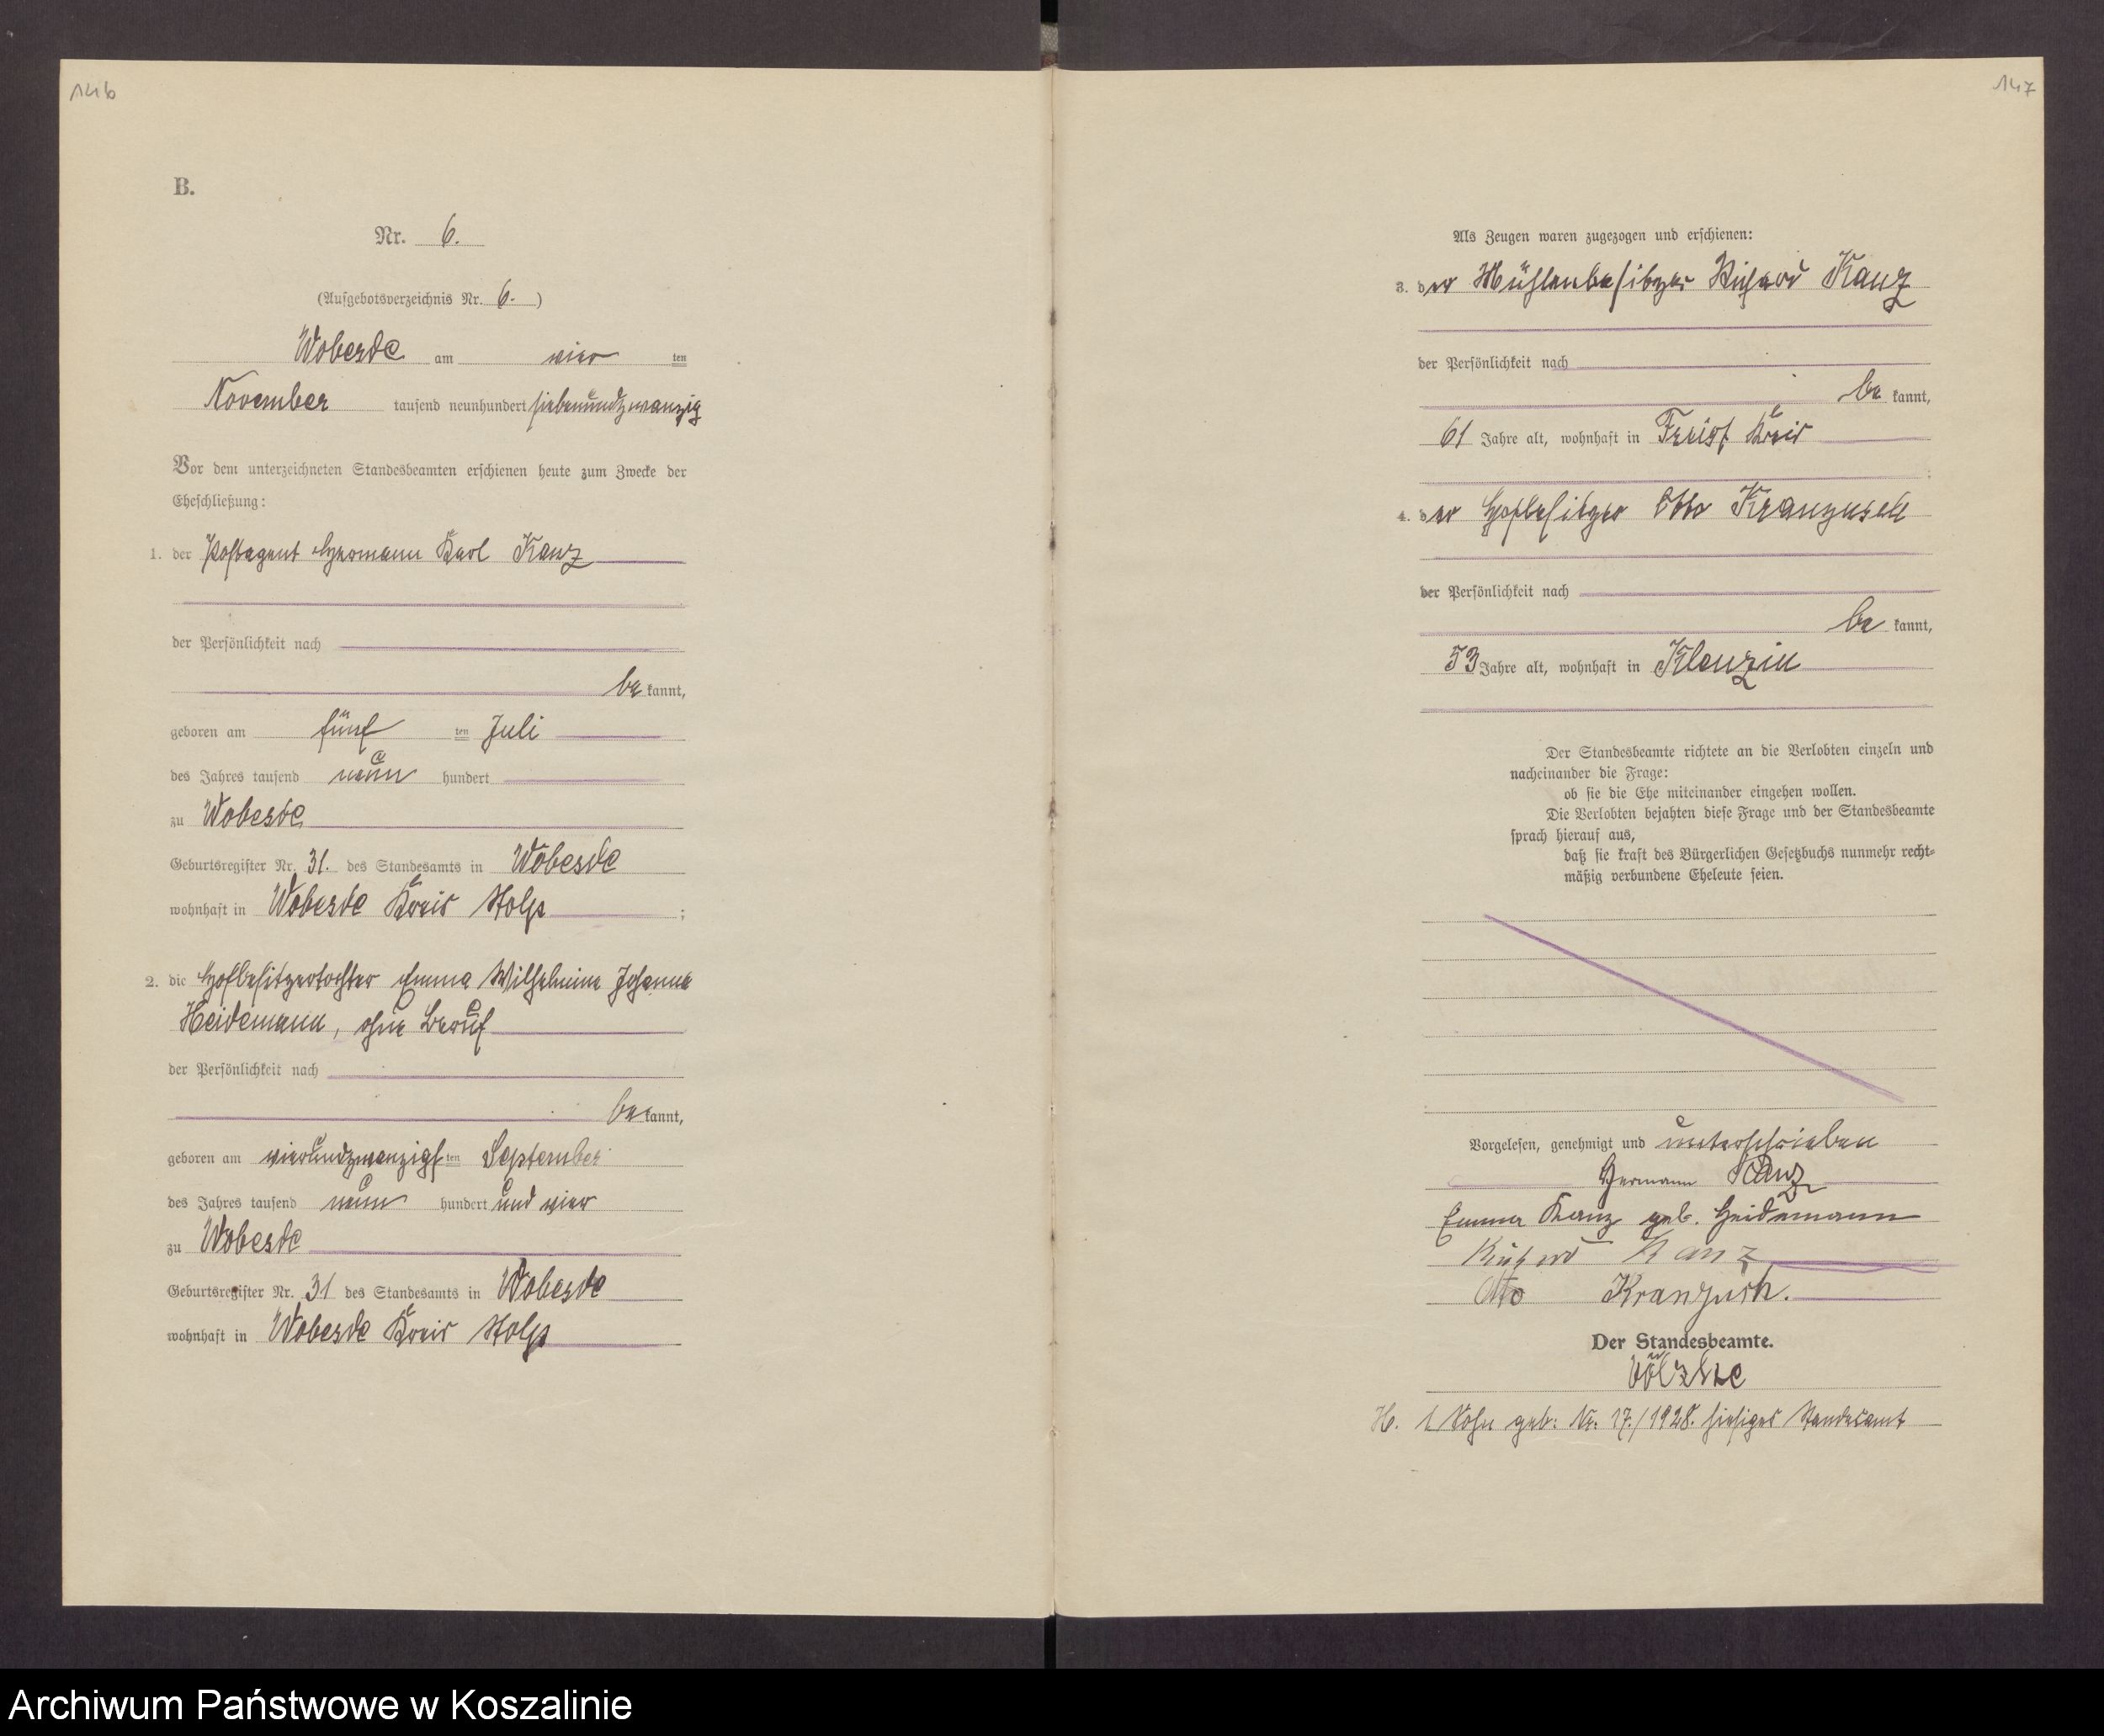 146
B.
Nr. 6.
(Aufgebotsverzeichnis Nr. 6.)
Wobesde am vier ten
November tausend neunhundert siebenundzwanzig
Vor dem unterzeichneten Standesbeamten erschienen heute zum Zwecke der
Eheschließung:
1. der Postagent Hermann Karl Kanz
der Persönlichkeit nach
be kannt,
geboren am fünf ten Juli
des Jahres tausend neun hundert
zu Wobesde
Geburtsregister Nr. 31. des Standesamts in Wobesde
wohnhaft in Wobesde Kreis Stolp ;
2. die Hofbesitzertochter Emma Wilhelmine Johanna
Heidemann, ohne Beruf
der Persönlichkeit nach
be kannt,
geboren am vierundzwanzigs ten September
des Jahres tausend neun hundert und vier
zu Wobesde
Geburtsregister Nr. 31 des Standesamts in Wobesde
wohnhaft in Wobesde Kreis Stolp
147
Als Zeugen waren zugezogen und erschienen:
3. der Mühlenbesitzer Richard Kanz
der Persönlichkeit nach
be kannt,
61 Jahre alt, wohnhaft in Freist Kreis
4. der Hofbesitzer Otto
der Persönlichkeit nach
be kannt,
53 Jahre alt, wohnhaft in Klenzin
Der Standesbeamte richtete an die Verlobten einzeln und
nacheinander die Frage:
ob sie die Ehe miteinander eingehen wollen.
Die Verlobten bejahten diese Frage und der Standesbeamte
sprach hierauf aus,
daß sie kraft des Bürgerlichen Gesetzbuchs nunmehr recht-
mäßig verbundene Eheleute seien.
Vorgelesen, genehmigt und unterschrieben
Hermann Kanz
Emma Kanz geb. Heidemann
Richard Kanz
Otto
Der Standesbeamte.
Völzke
H. 1 Sohn geb: Nr. 17./1928. hiesiges Standesamt
Archiwum Państwowe w Koszalinie